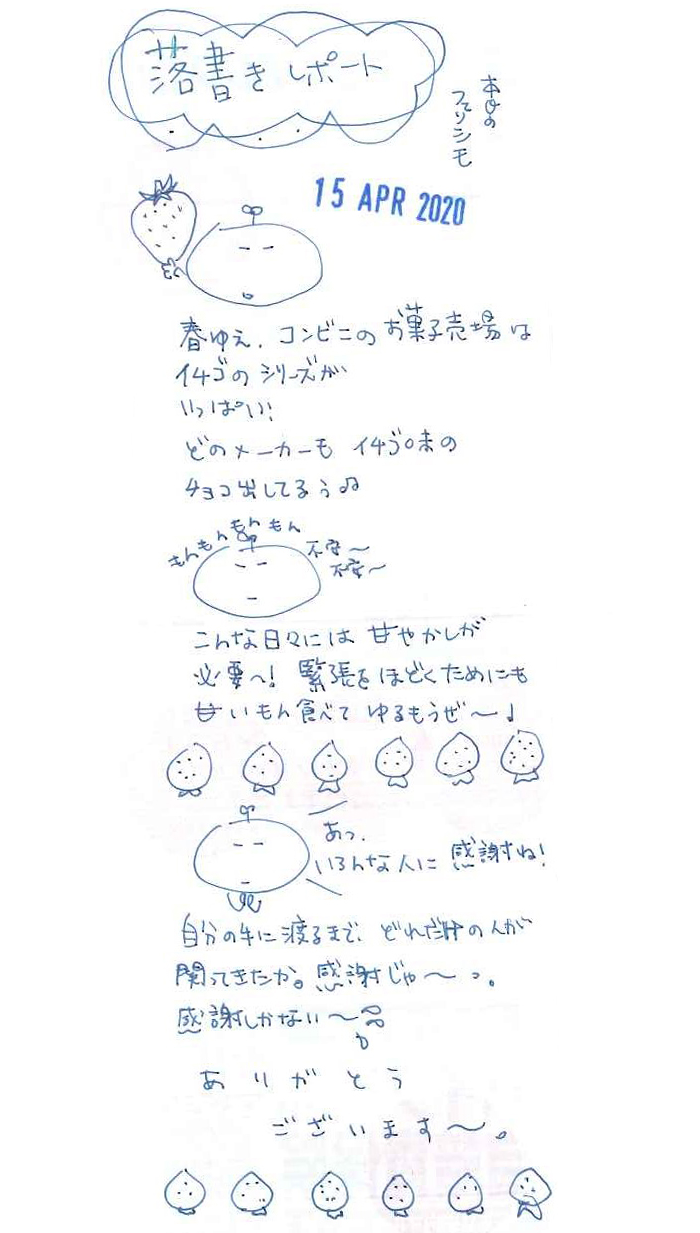 落書きレポート
本日の
フェリシモ
15 APR 2020
春ゆえ、コンビニのお菓子売場は
イチゴのシリーズが
いっぱい!
どのメーカーも イチゴ味の
チョコ出してるぅ♫
もんもんもんもん
不安〜
不安〜
こんな日々には 甘やかしが
必要へ! 緊張をほどくためにも
甘いもん食べて ゆるもうぜ〜♩
あっ、
いろんな人に 感謝ね!
自分の手に渡るまで、どれだけの人が
関ってきたか。感謝じゃ〜っ。
感謝しかない〜
ありがとう
ございます〜。